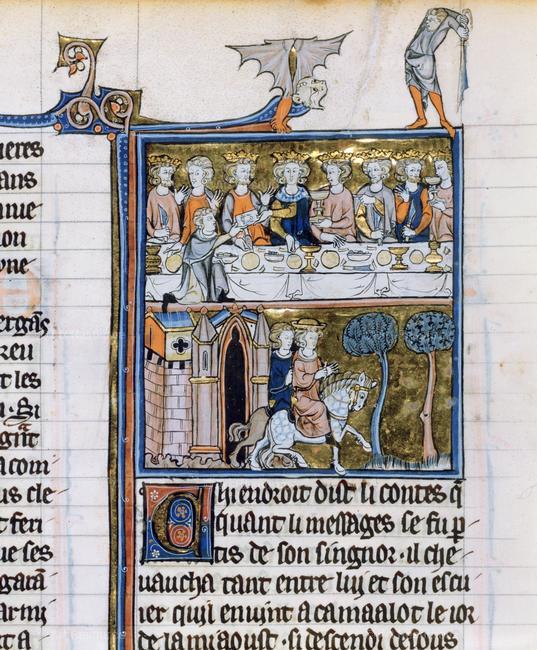 ieres
ans
nue
on
t les
Si
a com
us cle
t feri
ue ses
garã
armi
t a
Chi endroit dist li contes q̃
quant li messages se fu ꝑ
tis de son singnor · il che
uaucha tant entre luy et son escu
ier quil enuint a camaalot le ior
de la mi aoust · si descendi desous